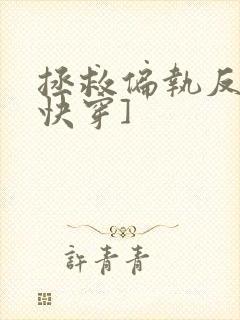 拯救偏執反
快穿]
許青青